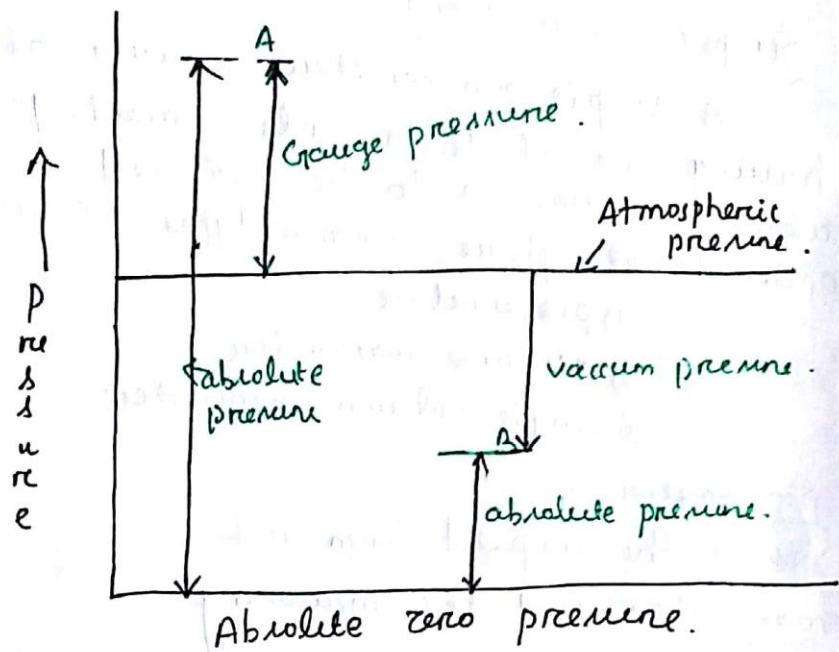 A
Gauge pressure.
Atmospheric
pressure.
Pressure
absolute
pressure
vaccum pressure.
B
absolute pressure.
Absolute zero pressure.